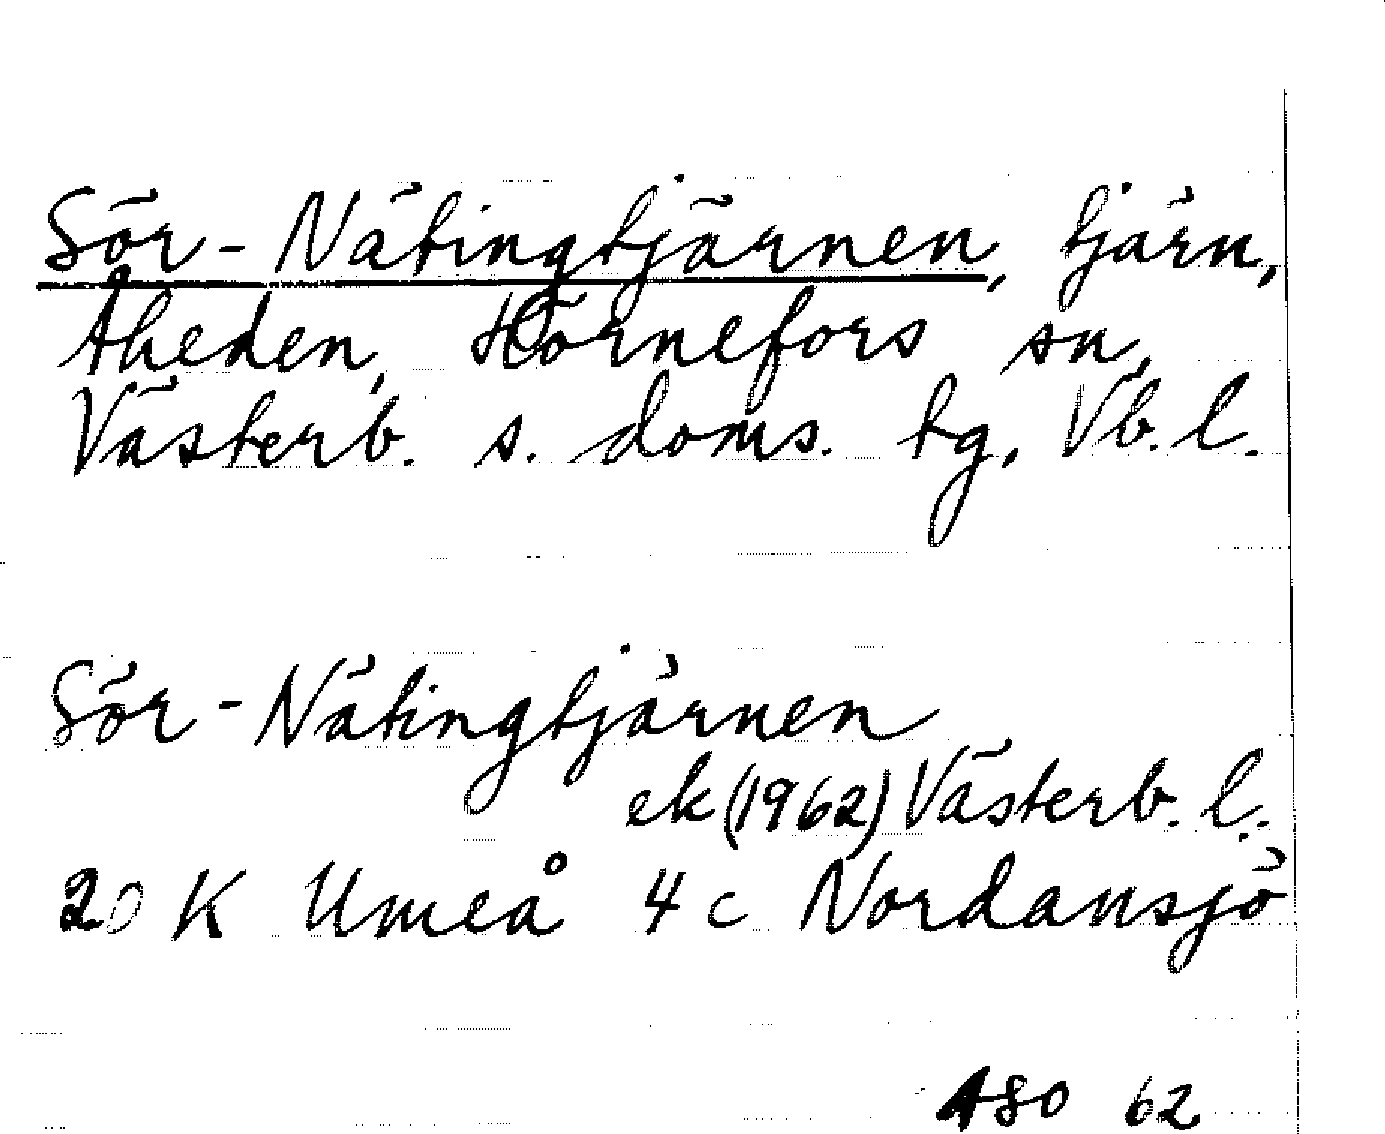 Sör-Nätingtjärnen, tjärn,
Åheden, Hörnefors sn,
Västerb. s. doms. tg, Vb. l.
Sör-Nätingtjärnen
ek (1962) Västerb. l.
20 K Umeå 4 c Nordansjö
ASO 62